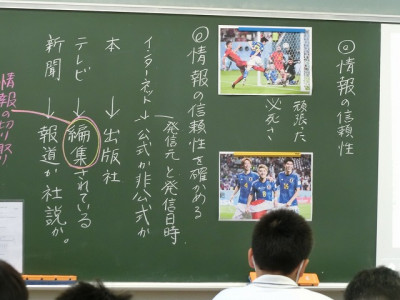 ◎情報の信頼性
頑張た
必死さ
◎情報の信頼性を確かめる
発信元と発信日時
インターネット→公式か非公式か
本→出版社
テレビ→編集されている
新聞→報道か社説か。
情報の切り取り